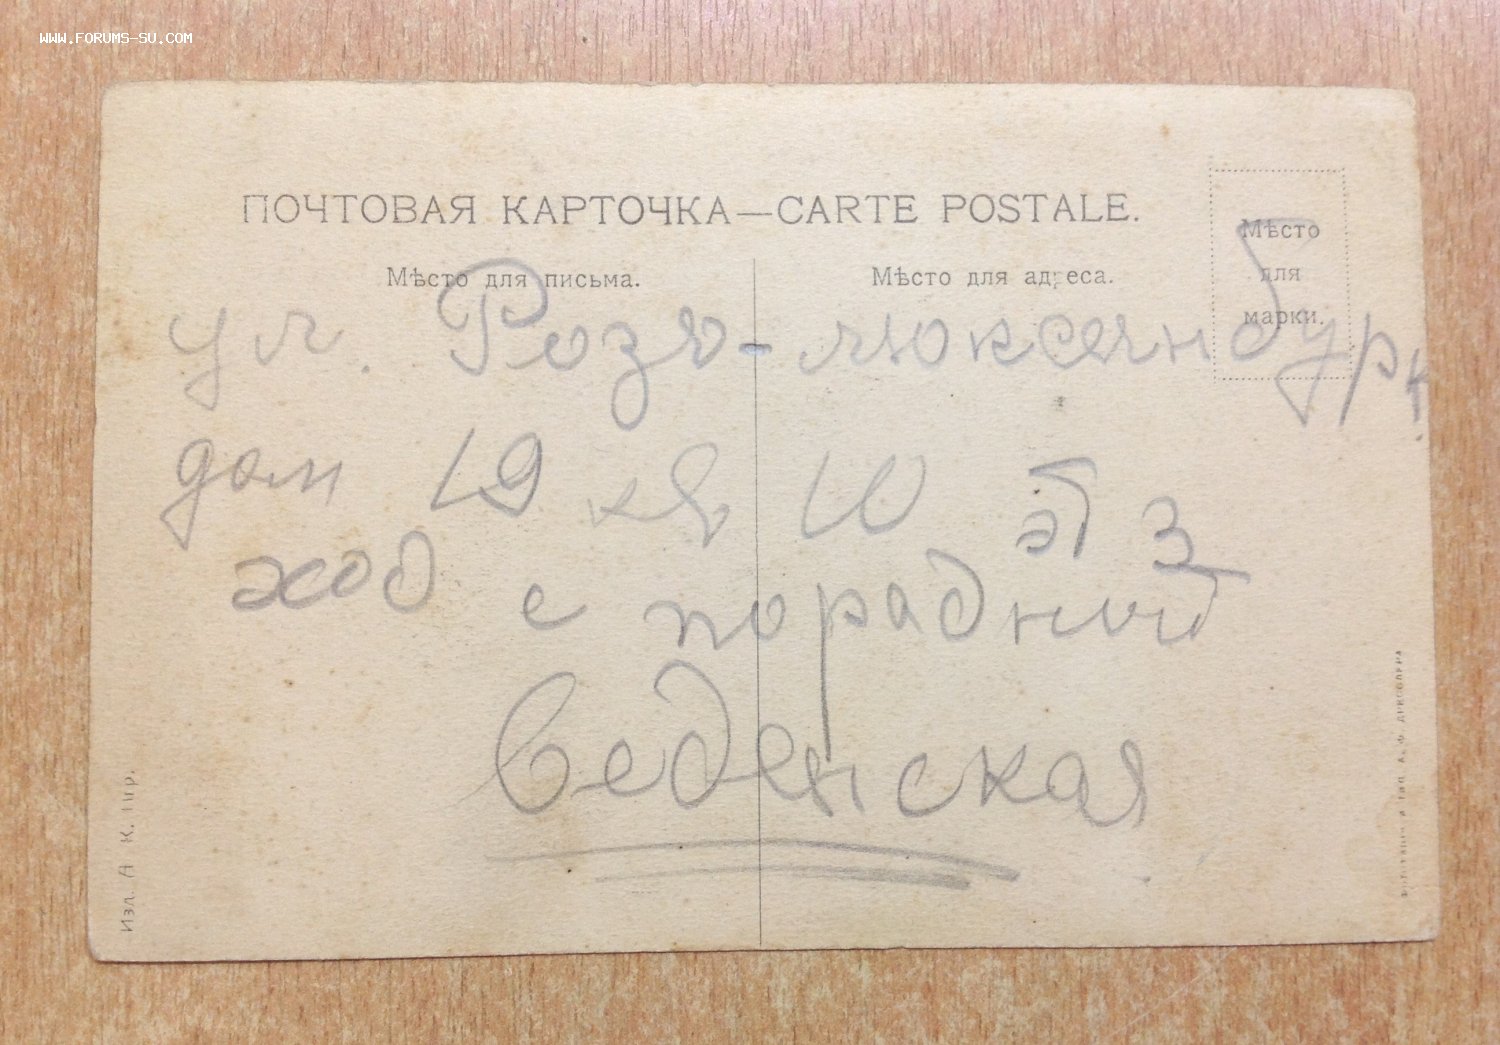 WWW.FORUMS-SU.COM
ПОЧТОВАЯ КАРТОЧКА—CARTE POSTALE.
Мѣсто для письма.
Мѣсто для адреса.
Мѣсто
для
марки.
ул. Розы-люксенбург
дом 19 кв 10 эт 3
ход с порадной
Веденская
Изд. А. К. Пгр.